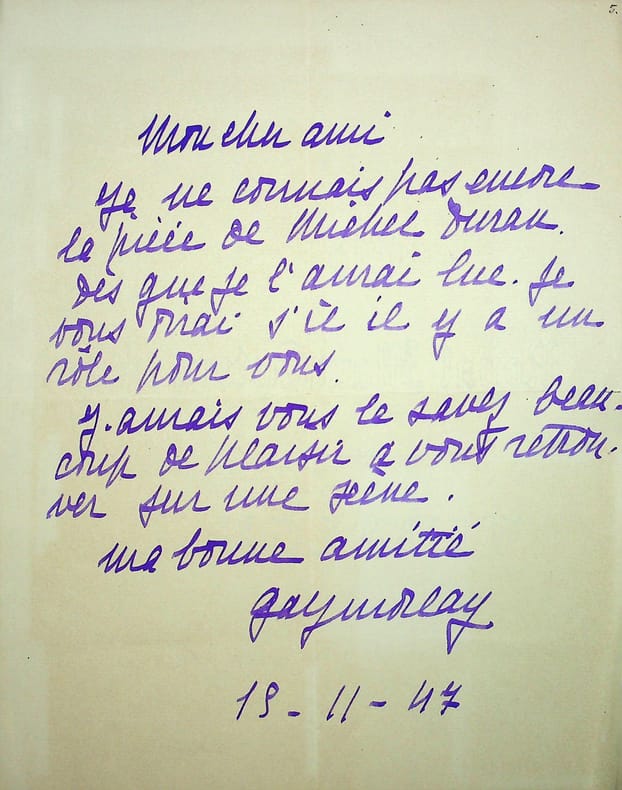 5.
Mon cher ami
Je ne connais pas encore
la pièce de Michel Duran.
Dès que je l'aurai lue. Je
vous dirai s'il il y a un
rôle pour vous.
J'aurais vous le savez beau-
coup de plaisir a vous retrou-
ver sur une scène.
ma bonne amitié
gaymorlay
19-11-47